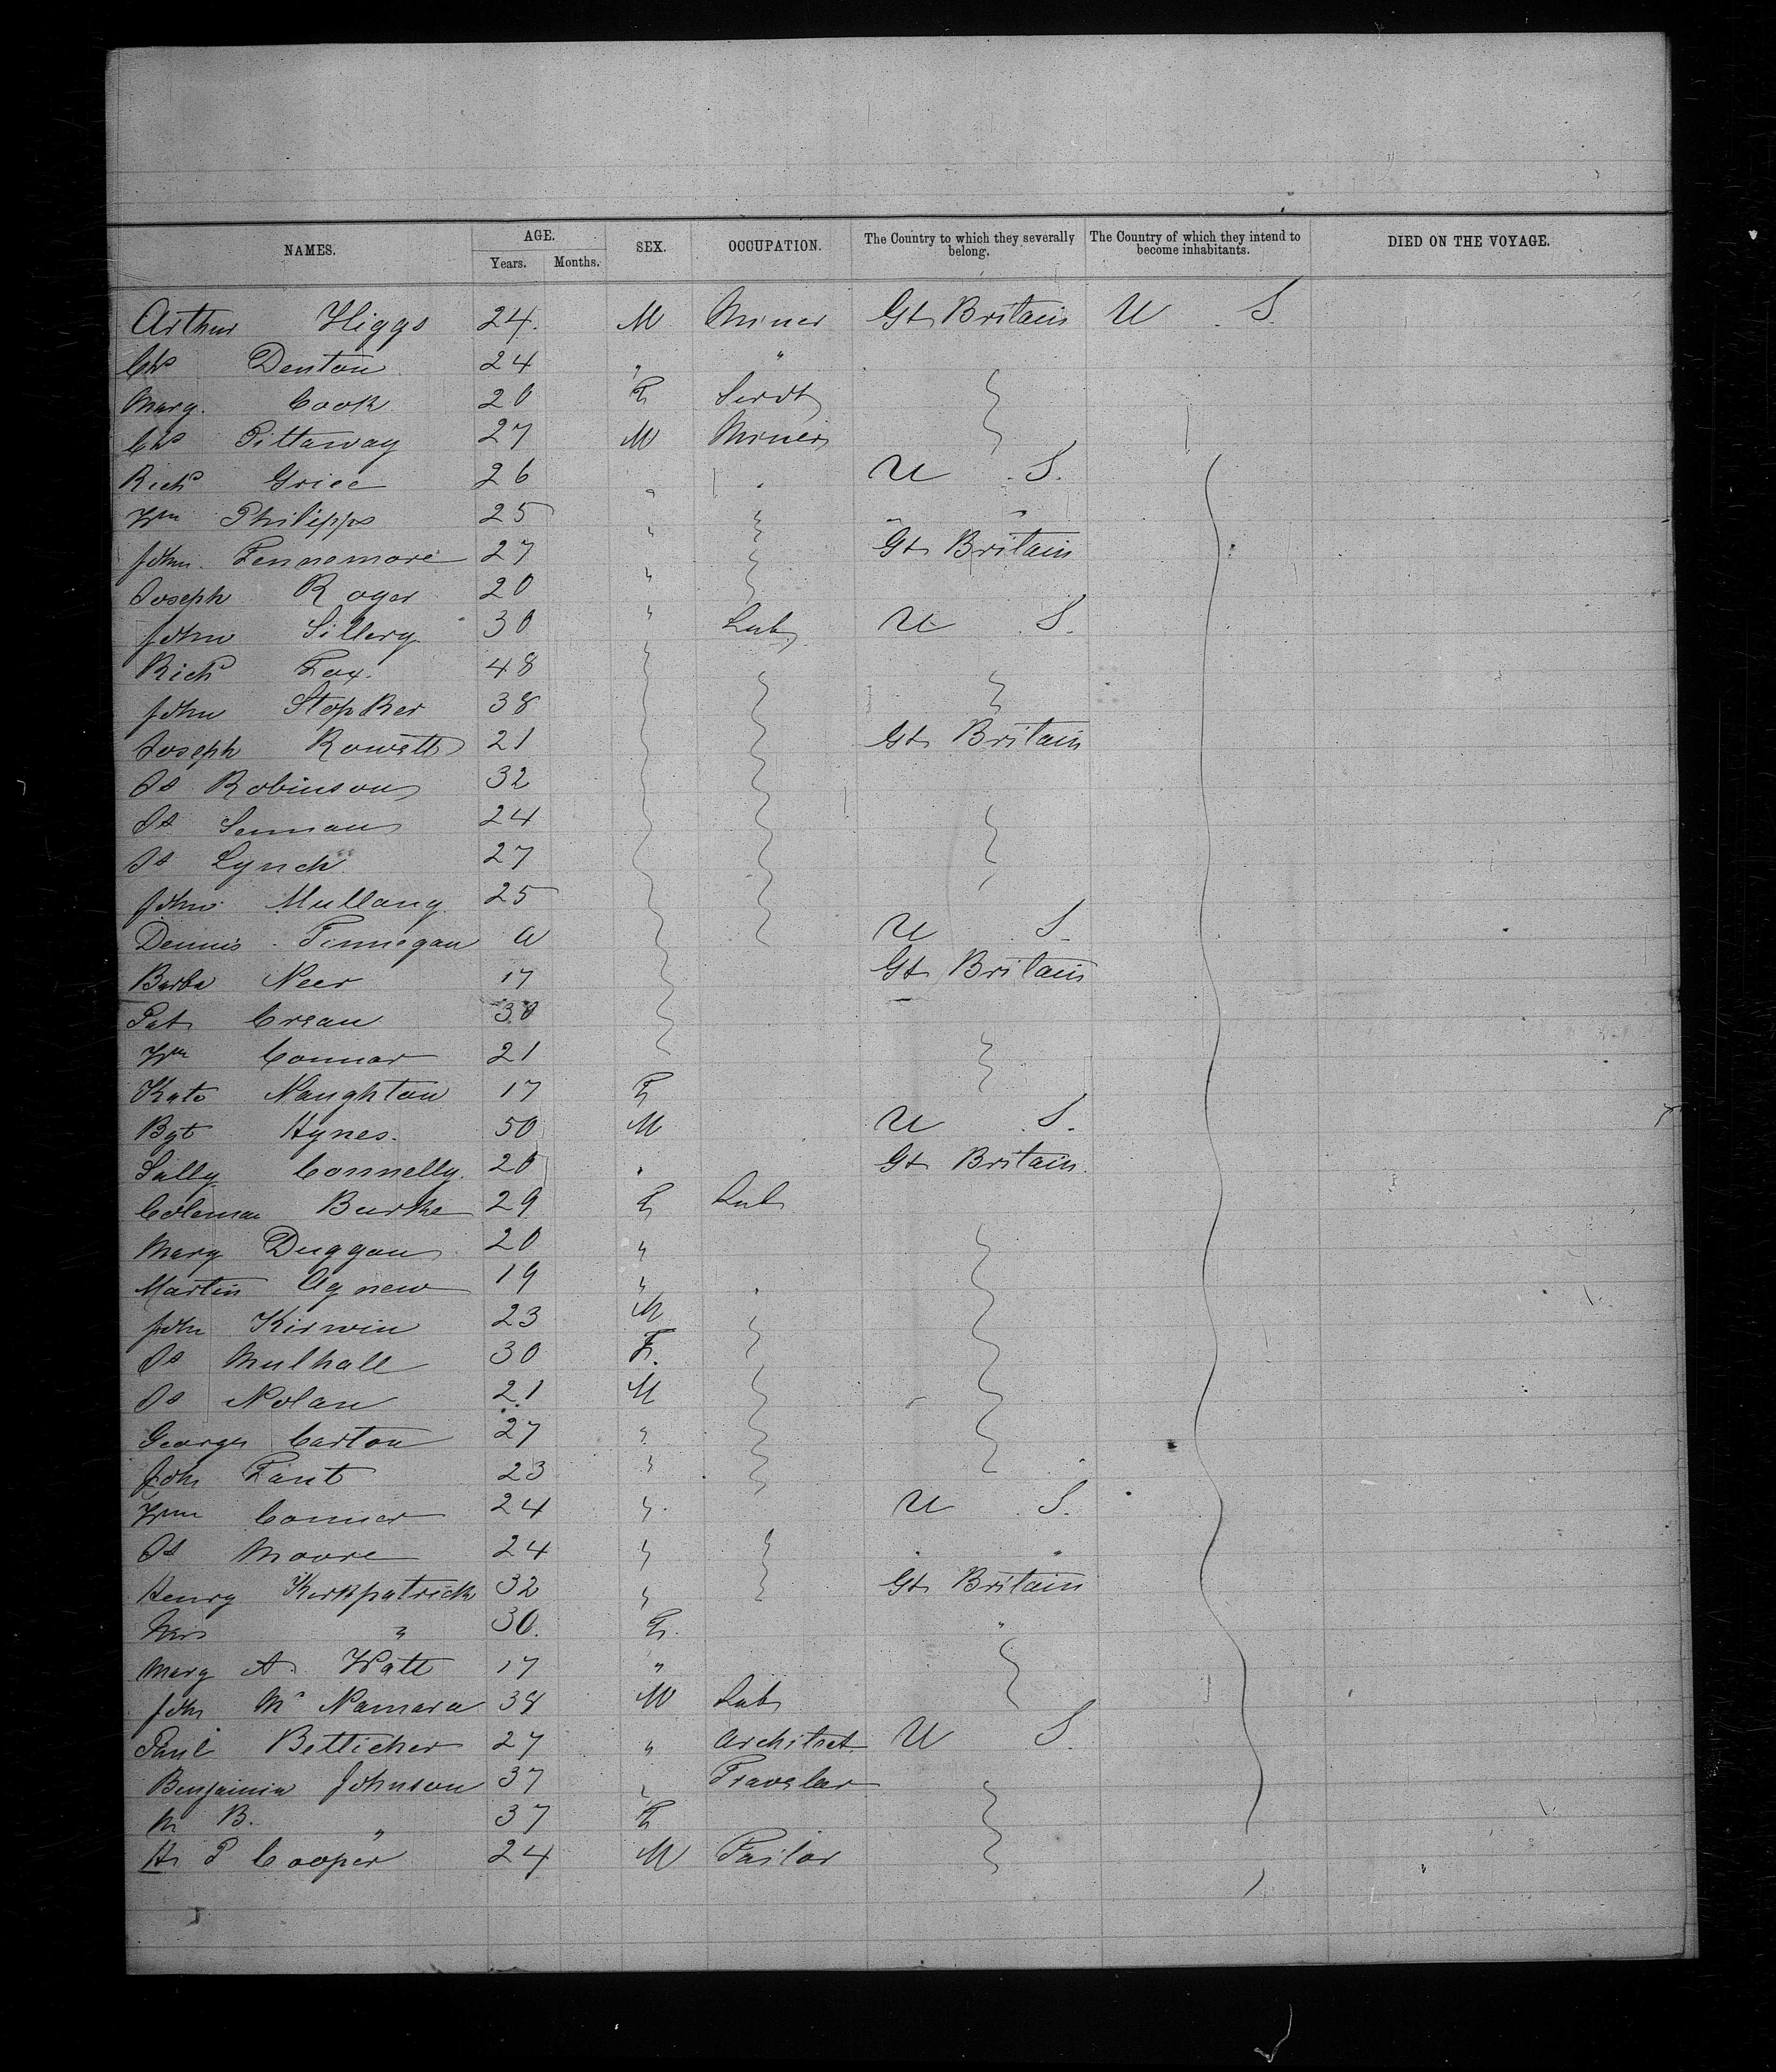 NAMES. AGE. SEX. OCCUPATION. The Country to which they severally belong. The Country of which they intend to become inhabitants. DIED ON THE VOYAGE.
Years. Months.
Arthur Higgs 24. M Miner Gt Britain U. S.
Chs Denton 24 " "
Mary. Cook 20 F Servt
Chs Pittaway 27 M Miner
Richd Grice 26 " " U. S.
Wm Philipps 25 " " "
John. Fennemore 27 " Gt Britain
Joseph Roger 20 "
John Sillery 30 " Lab U. S.
Richd Fox. 48
John Stopker 38
Joseph Rowett 21 Gt Britain
Js Robinson 32
Js Sennan 24
Js Lynch 27
John Mullany 25
Dennis Finnegan a U S.
Barba Neer 17 Gt Britain
Pat Crean 30
Wm Connor 21
Kate Naughton 17 F
Bgt Hynes. 50 M U. S.
Sally Connelly. 20 " Gt Britain.
Coleman Burke 29 F Lab
Mary Duggan 20 "
Martin Agnew 19 " "
John Kirwin 23 M
Js Mulhall 30 F.
Js Nolan 21 M
George Carton 27 "
John Fant 23 "
Wm Connor 24 " U. S.
Js Moore 24 " " "
Henry Kirkpatrick 32 " Gt Britain
Mrs " 30. F. "
Mary A. Watt 17 "
John Mc Namara 38 M Lab
Paul Betticher 27 " Architect U S.
Benjamin Johnson 37 " Traveler
M B. " 37 F
H P Cooper 24 M Tailor